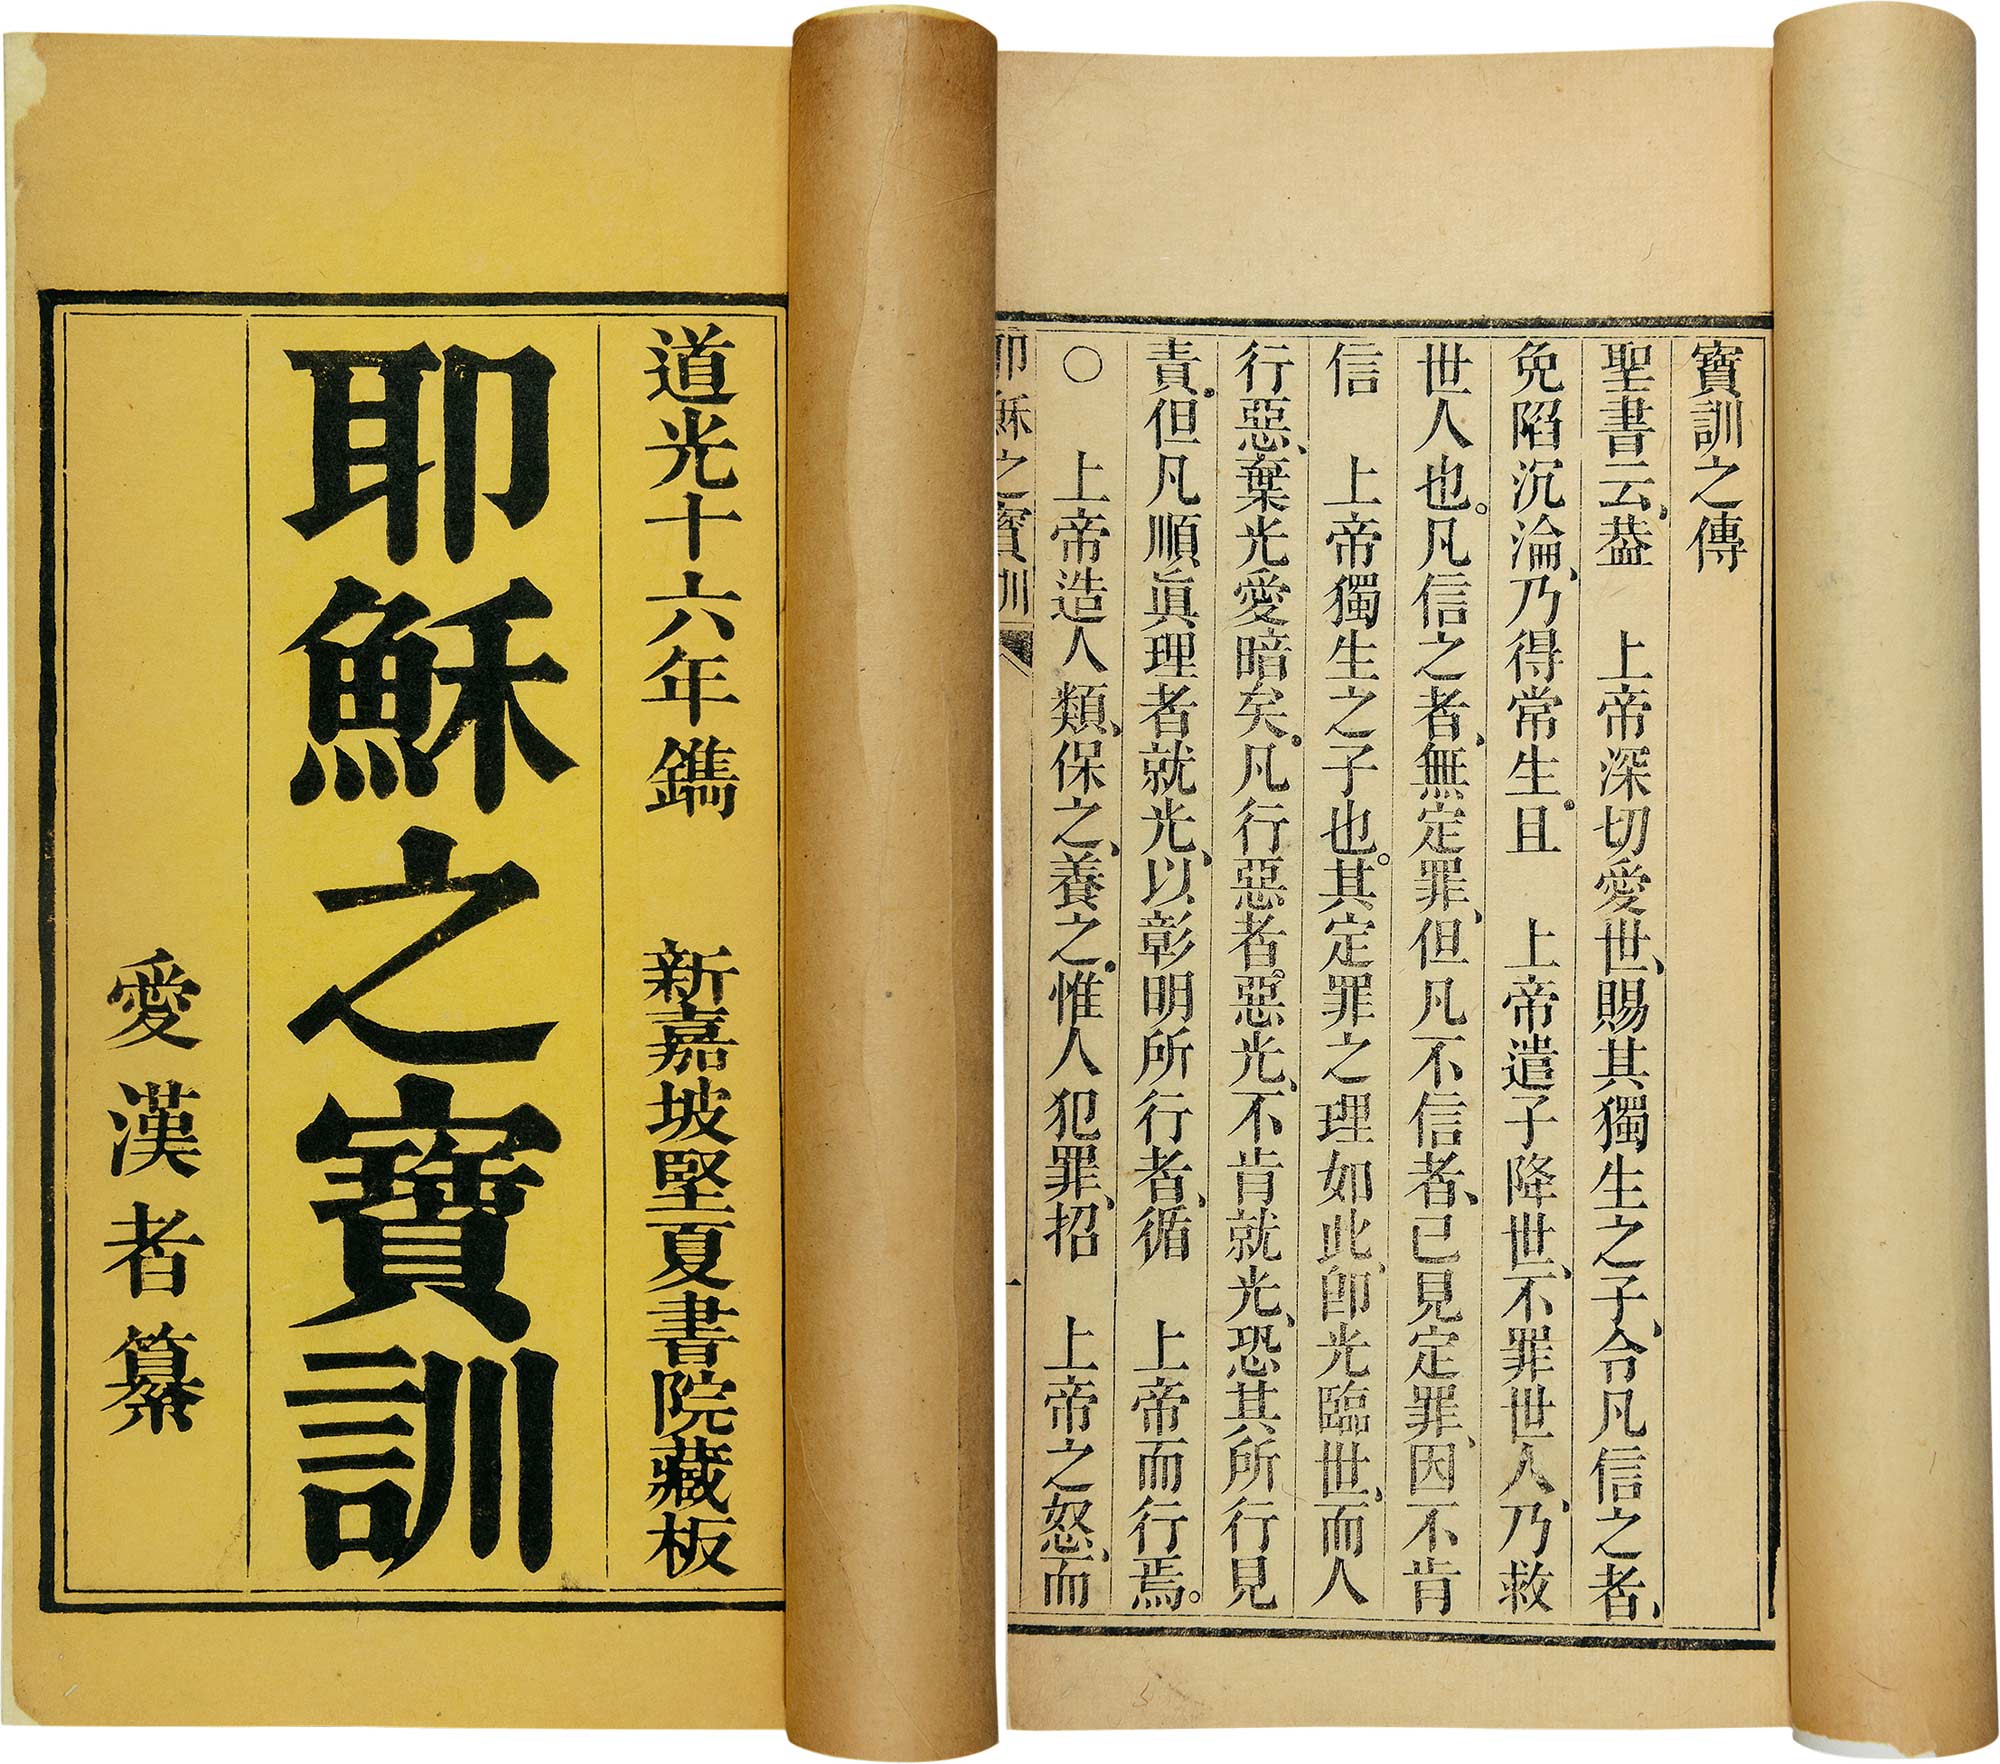 道光十六年鐫　新嘉坡堅夏書院藏板
耶穌之寶訓
愛漢者纂
寶訓之傳
聖書云、蓋　上帝深切愛世、賜其獨生之子、令凡信之者、
免陷沉淪、乃得常生。且　上帝遣子降世、不罪世人、乃救
世人也。凡信之者、無定罪、但凡不信者、已見定罪、因不肯
信　上帝獨生之子也。其定罪之理如此、卽光臨世、而人
行惡、棄光愛暗矣。凡行惡者。惡光、不肯就光、恐其所行見
責。但凡順眞理者就光、以彰明所行者、循　上帝而行焉。
○　上帝造人類、保之、養之。惟人犯罪、招　上帝之怒、而
耶穌之寶訓　一